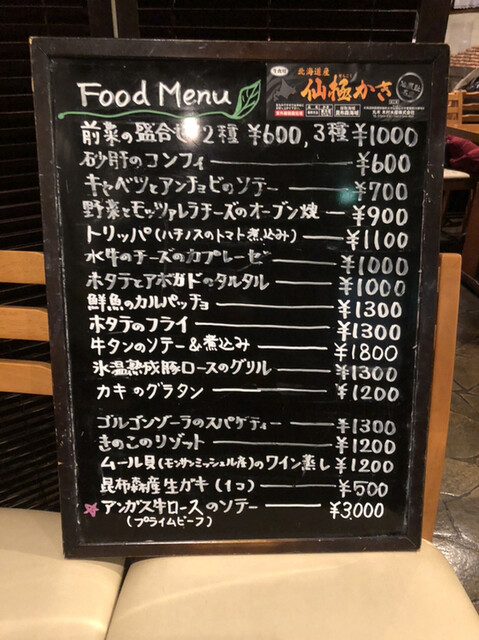 Food Menu
北海道産
仙極かき
前菜の盛合せ 2種 ¥600, 3種 ¥1000
砂肝のコンフィ ¥600
キャベツとアンチョビのソテー ¥700
野菜とモッツァレラチーズのオーブン焼 ¥900
トリッパ(ハチノスのトマト煮込み) ¥1100
水牛のチーズのカプレーゼ ¥1000
ホタテとアボガドのタルタル ¥1000
鮮魚のカルパッチョ ¥1300
ホタテのフライ ¥1300
牛タンのソテー&煮込み ¥1800
氷温熟成豚ロースのグリル ¥1300
カキのグラタン ¥1200
ゴルゴンゾーラのスパゲティー ¥1300
きのこのリゾット ¥1200
ムール貝(モンサンミッシェル産)のワイン蒸し ¥1200
昆布森産生ガキ(1コ) ¥500
アンガス牛ロースのソテー ¥3,000
(プライムビーフ)